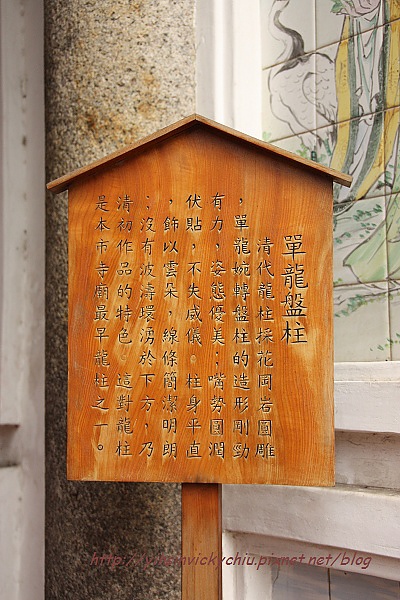 單龍盤柱
清代龍柱採花岡岩圓雕
，單龍婉轉盤柱的造形剛勁
有力，姿態優美：嘴勢圓潤
伏貼，不失威儀。柱身平直
，飾以雲朵，線條簡潔明朗
；沒有波濤環湧於下方，乃
清初作品的特色。這對龍柱
是本市寺廟最早龍柱之一。